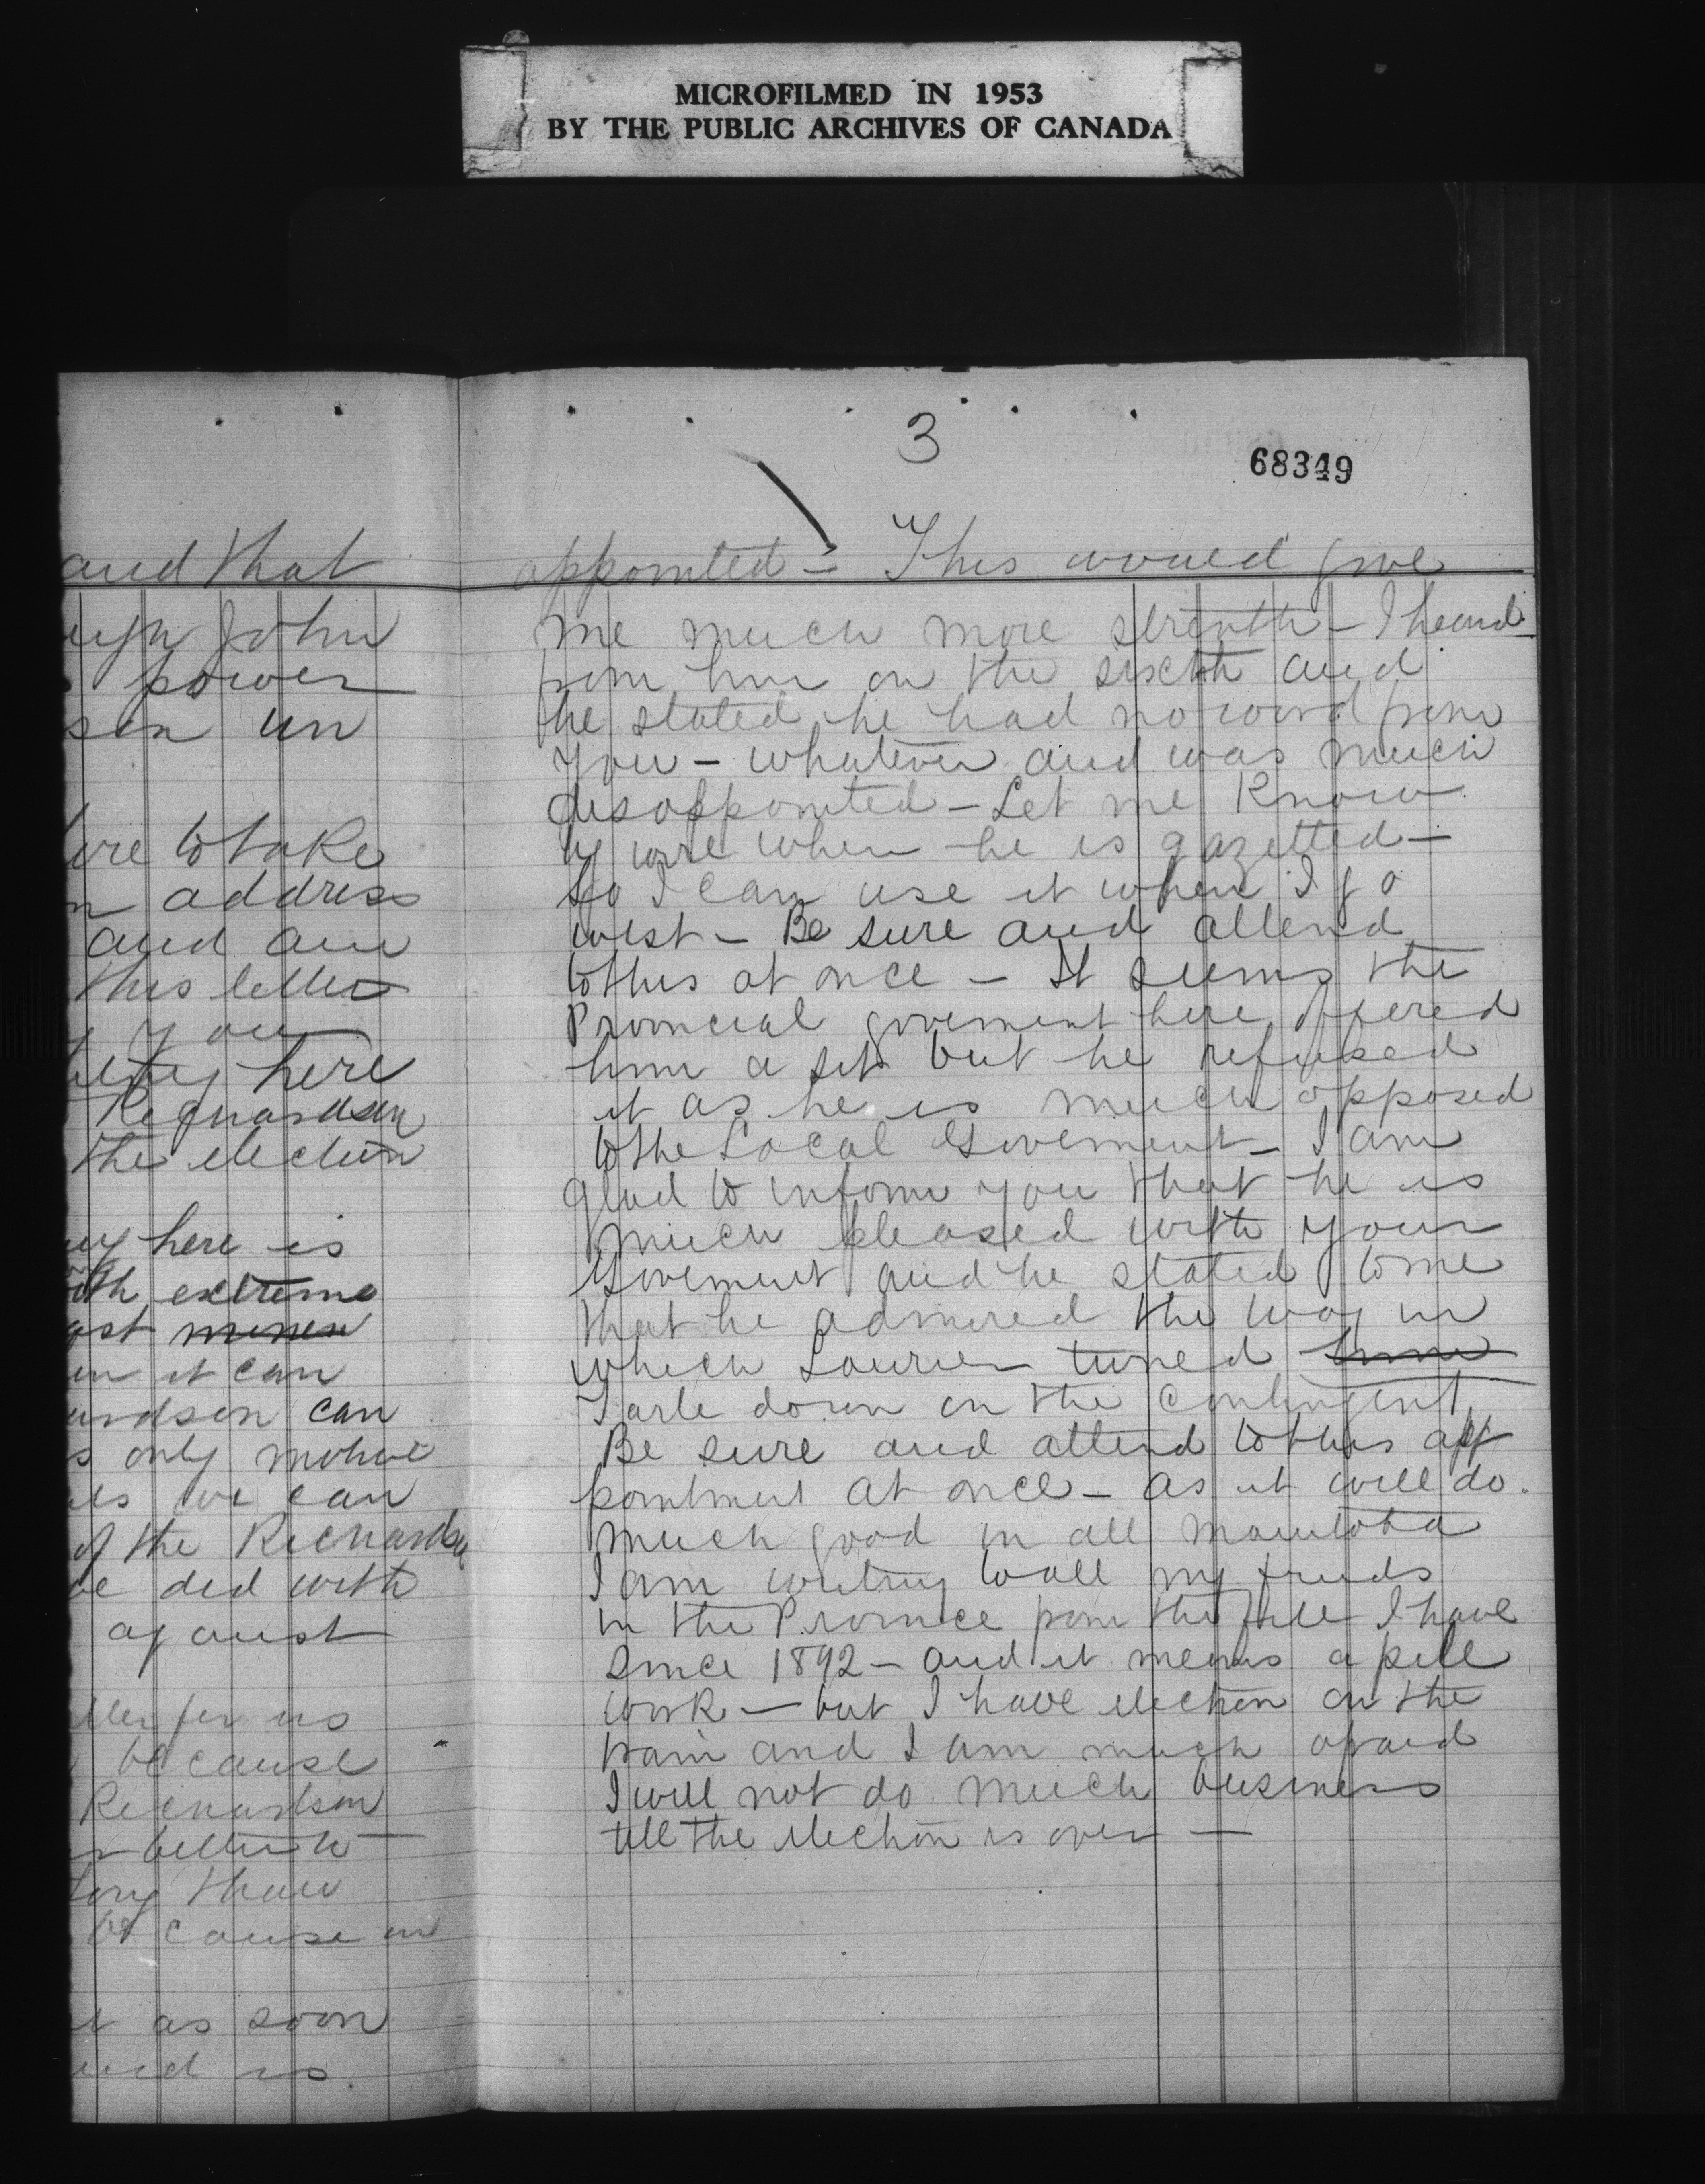 MICROFILMED IN 1953
BY THE PUBLIC ARCHIVES OF CANADA
3
68349
and that
John
power
un
to take
address
and am
this letter
you
here
Richardson
the election
here is
extreme
it can
can
only motive
we can
of the Richardson
did with
against
for us
because
Richardson
than
because
as soon
us.
appointed - This would give
me much more strenth - I heard
from him on the sixth and
he stated he had no word from
you - whatever and was much
disappointed - Let me know
by wire when he is gazetted -
So I can use it when I go
west - Be sure and attend
to this at once - It seems the
Provincial goverment here offered
him a sit but he refused
it as he is much opposed
to the Local Goverment - I am
glad to inform you that he is
much pleased with your
Goverment and he stated to me
that he admired the way in
which Laurier turned
Tarte down on the Contingent
Be sure and attend to this app
pointment at once - as it will do
much good in all Manitoba
I am writing to all my friends
in the Province from the file I have
since 1892 - and it means a pile
work - but I have election on the
brain and I am much afraid
I will not do much business
till the election is over -